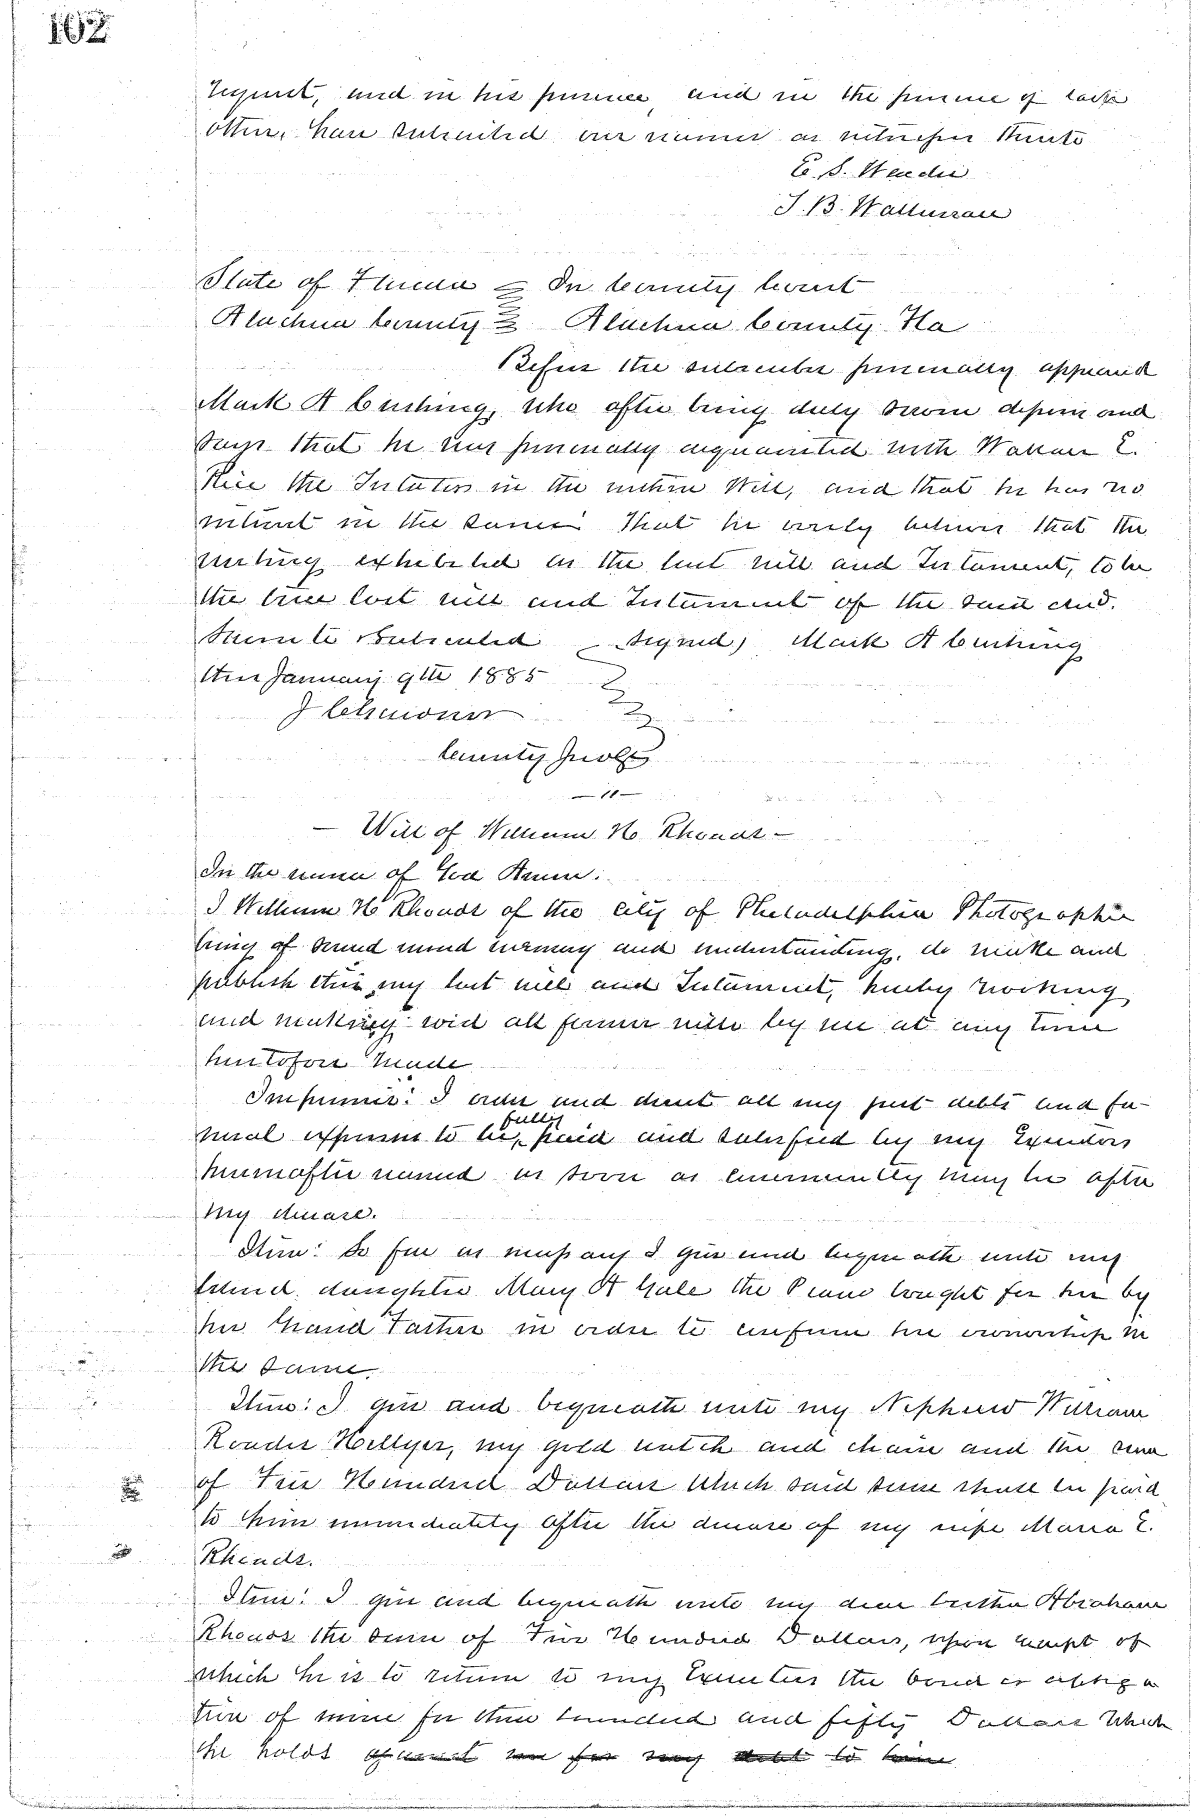 162
request, and in his presence, and in the presence of each
other, have subscribed our names as witnesses thereto
J. B. Watterson
State of Florida In County Court
Alachua County Alachua County Fla
Before the subscriber personally appeared
Mark A Cushing, who after being duly sworn deposes and
says that he was personally acquainted with Wallace E.
Rice the Testator in the within Will, and that he has no
interest in the same. That he verily believes that the
writing exhibited as the last will and Testament, to be
the true last will and Testament of the said decd.
Sworn to & subscribed Signed) Mark A Cushing
this January 9th 1885
County Judge
— " —
— Will of William H Rhoads —
In the name of God Amen:
I William H Rhoads of the City of Philadelphia Photographer
being of sound mind memory and understanding, do make and
publish this my last will and Testament, hereby revoking
and making void all former wills by me at any time
heretofore made
Imprimis: I order and direct all my just debts and fu-
neral expenses to be fully paid and satisfied by my Executors
hereinafter named as soon as conveniently may be after
my decease.
Item: So far as necessary I give and bequeath unto my
beloved daughter Mary A Gale the Piano bought for her by
her Grand Father in order to confirm her ownership in
the same.
Item: I give and bequeath unto my Nephew William
Roades Hellyer, my gold watch and chain and the sum
of Five Hundred Dollars which said sum shall be paid
to him immediately after the decease of my wife Maria E.
Rhoads.
Item: I give and bequeath unto my dear brother Abraham
Rhoads the sum of Five Hundred Dollars, upon receipt of
which he is to return to my Executors the bond or obliga
tion of mine for three hundred and fifty Dollars which
he holds against me for my debt to him